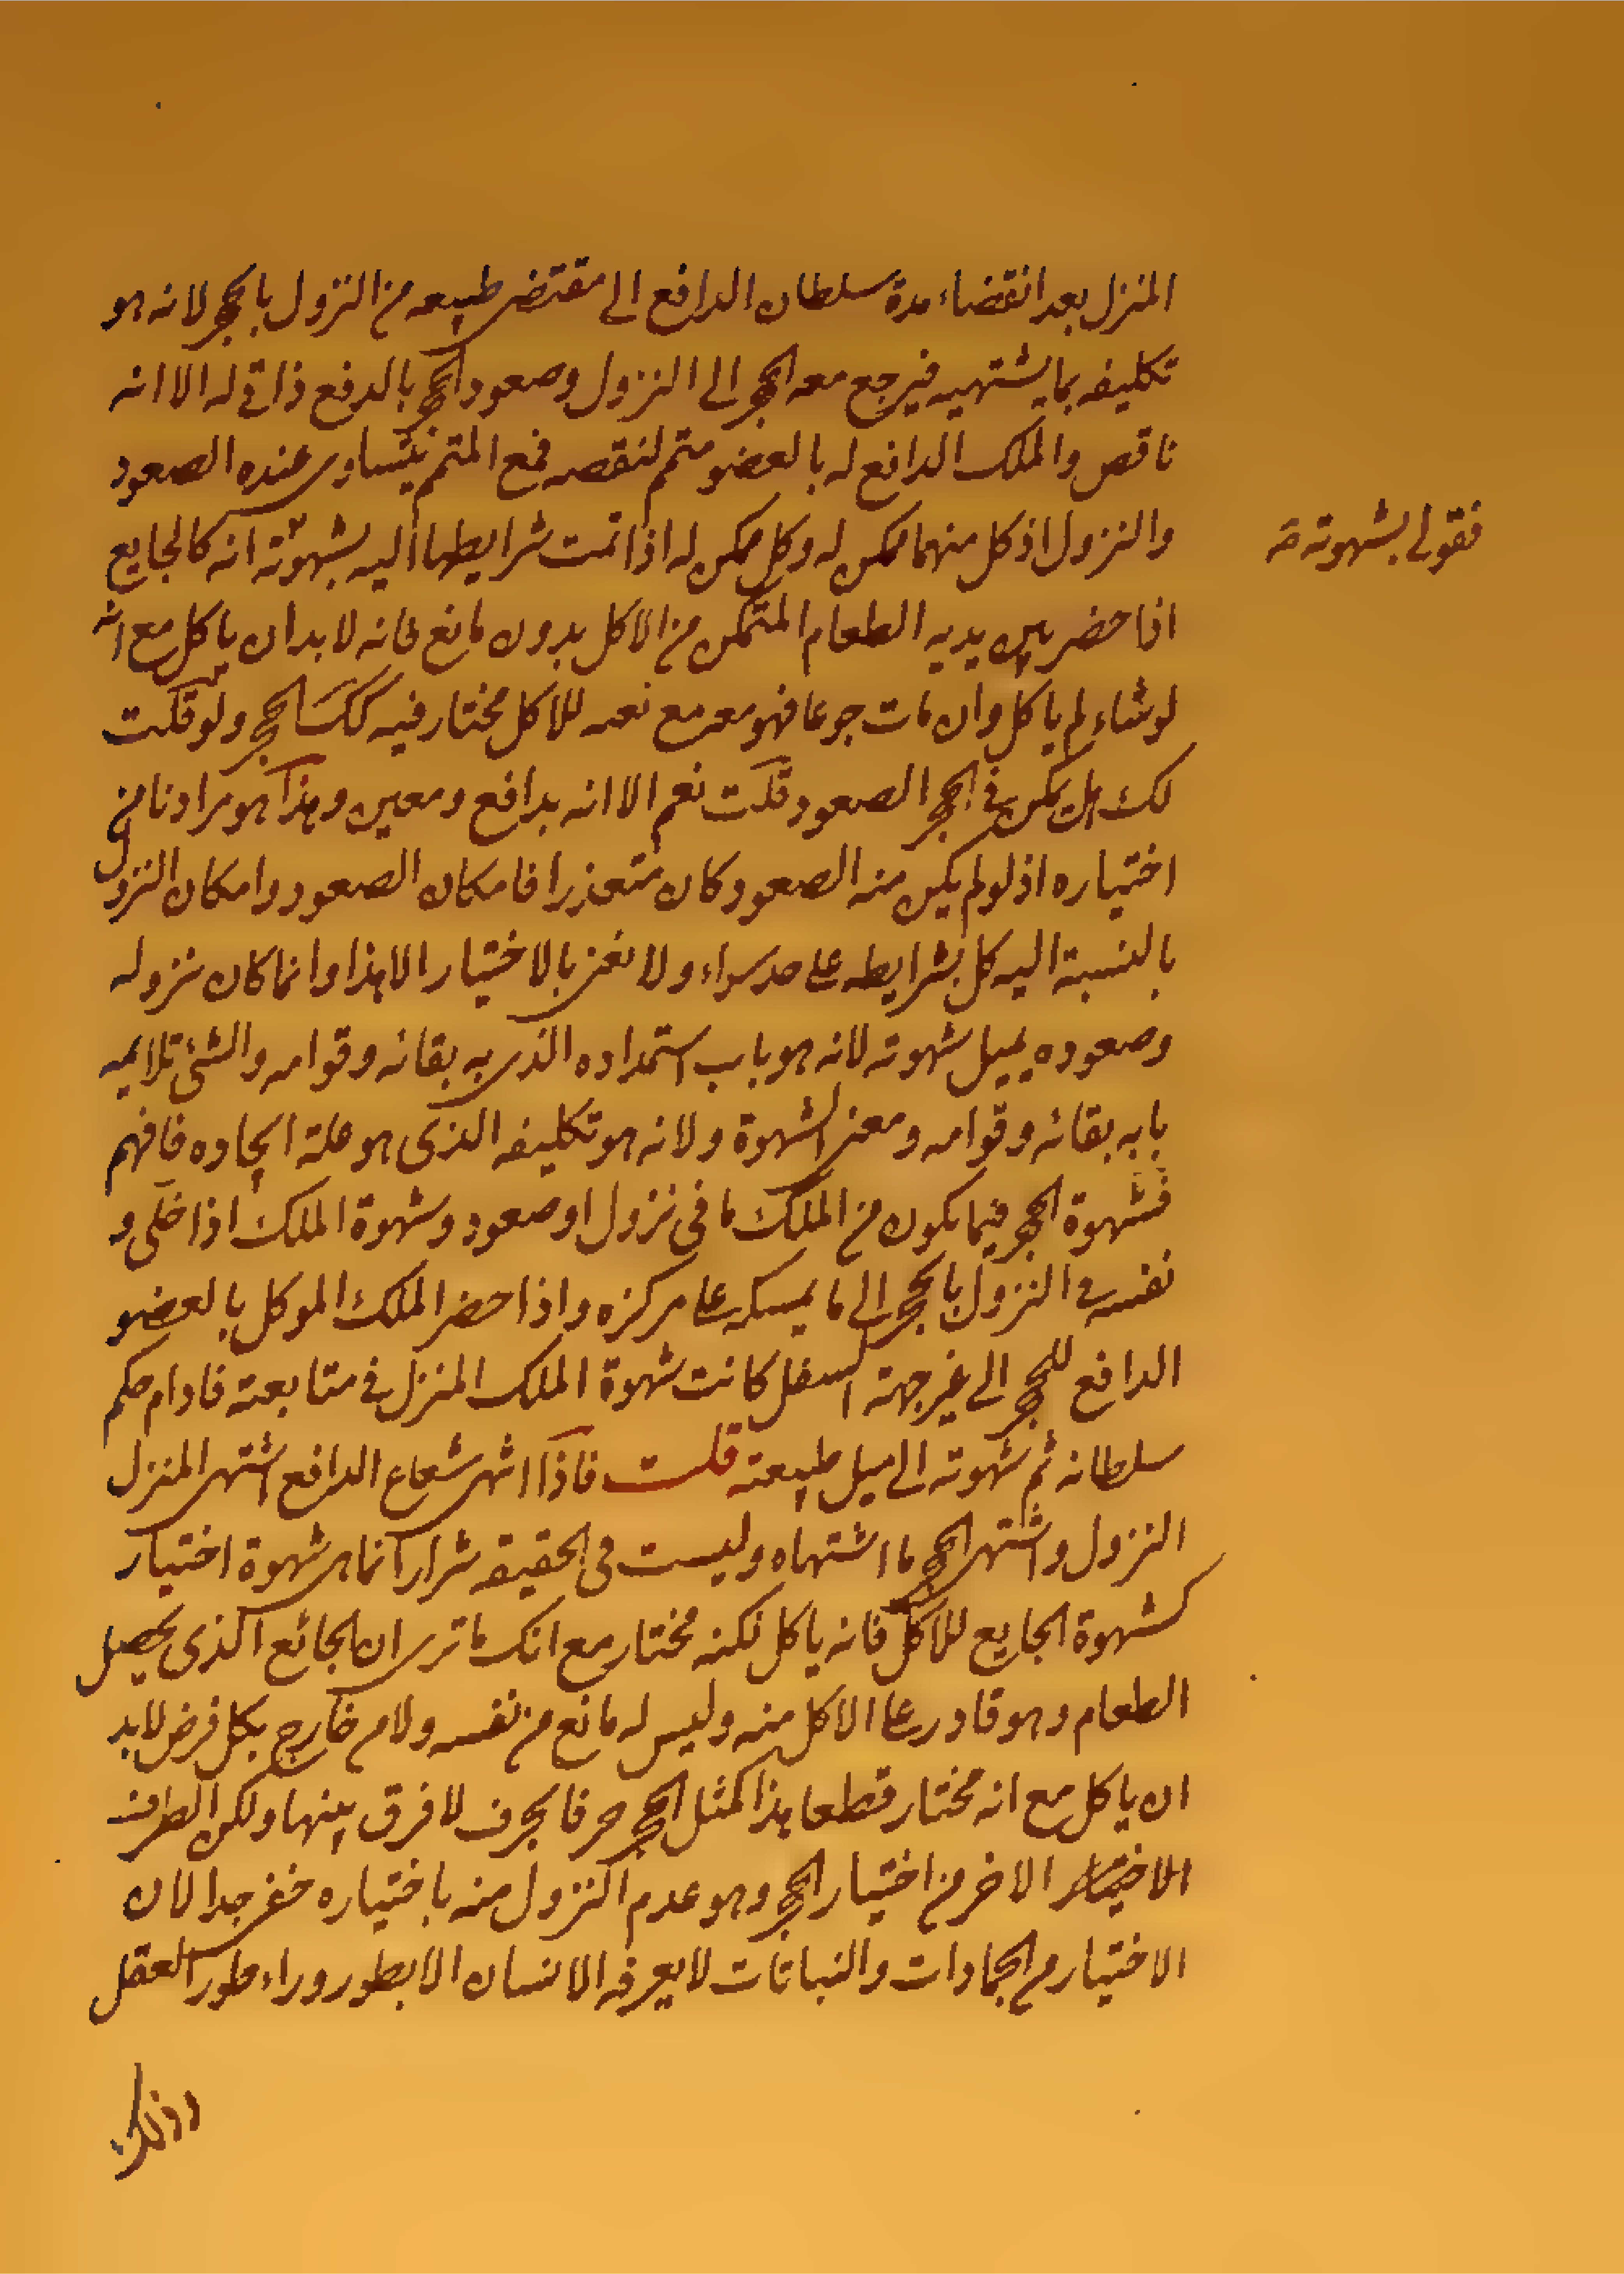 المنزل بعد انقضاء مدة سلطان الدافع الى مقتضى طبيعه من النزول بالحجر لانه هو
تكليفه بما يشتهيه فيرجع معه الحجر الى النزول وصعود الحجر بالدفع ذاتي له الا انه
ناقص والملك الدافع له بالعضو متمم لنقصه فمع المتمم يتساوى عنده الصعود
والنزول اذ كل منهما ممكن له وكل ممكن له اذا تمت شرايطها اليه بشهوته انه كالجايع
فقولى بشهوته
اذا حضر بين يديه الطعام المتمكن من الاكل بدون مانع فانه لا بد ان ياكل مع انه
لو شاء لم ياكل وان مات جوعا فهو مع للاكل مختار فيه كك الحجر ولو قلت
لك هل يمكن في الحجر الصعود قلت نعم الا انه بدافع ومعين وهذا هو مرادنا من
اختياره اذ لو لم يكن منه الصعود كان متعذرا فامكان الصعود وامكان النزول
بالنسبة اليه كل بشرايطه على حد سواء ولا نعنى بالاختيار الا هذا وانما كان نزوله
وصعوده يميل شهوته لانه هو باب استمداده الذى به بقائه وقوامه والشئ تلايمه
بابه بقائه وقوامه ومعنى الشهوة ولانه هو تكليفه الذى هو علة ايجاده فافهم
فشهوة الحجر فيما يكون من الملك ما فى نزول او صعود وشهوة الملك اذا خلى و
نفسه في النزول بالحجر الى ما يمسكه على مركزه واذا حضر الملك الموكل بالعضو
الدافع للحجر الى غير جهة السفل كانت شهوة الملك المنزل في متابعته مادام حكم
سلطانه ثم شهوته الى ميل طبيعته قلت فاذا انتهى شعاع الدافع اشتهى المنزل
النزول واشتهى الحجر ما اشتهاه وليست فى الحقيقه انما هى شهوة اختيار
كشهوة الجايع للاكل فانه ياكل لكنه مختار مع انك ما ترى ان الجائع الذى يحصل
الطعام وهو قادر على الاكل منه وليس له مانع من نفسه ولا من خارج بكل فرض لا بد
ان ياكل مع انه مختار قطعا هذا كمثل الحجر حرفا بحرف لا فرق بينهما ولكن الطرف
الاخر من اختيار الحجر وهو عدم النزول منه باختياره خفى جدا لان
الاختيار من الجمادات والنباتات لا يعرفه الانسان الا بطور وراء طور العقل